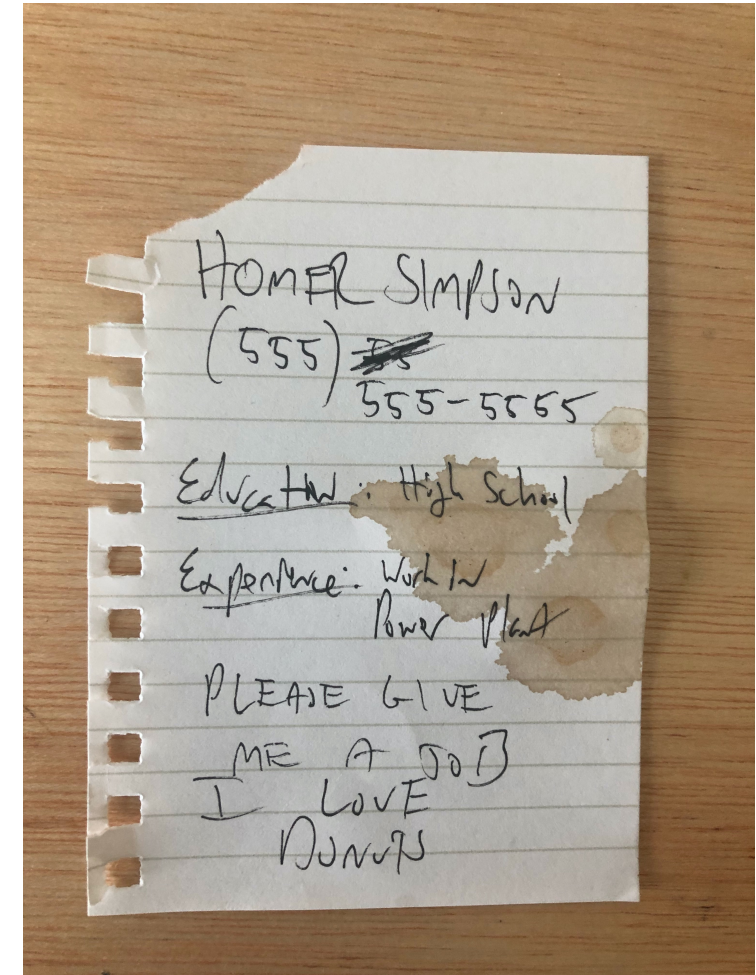 HOMER SIMPSON
(555)
555-5555
Education: High School
Experience: Work in
Power Plant
PLEASE GIVE
ME A JOB
I LOVE
DONUTS